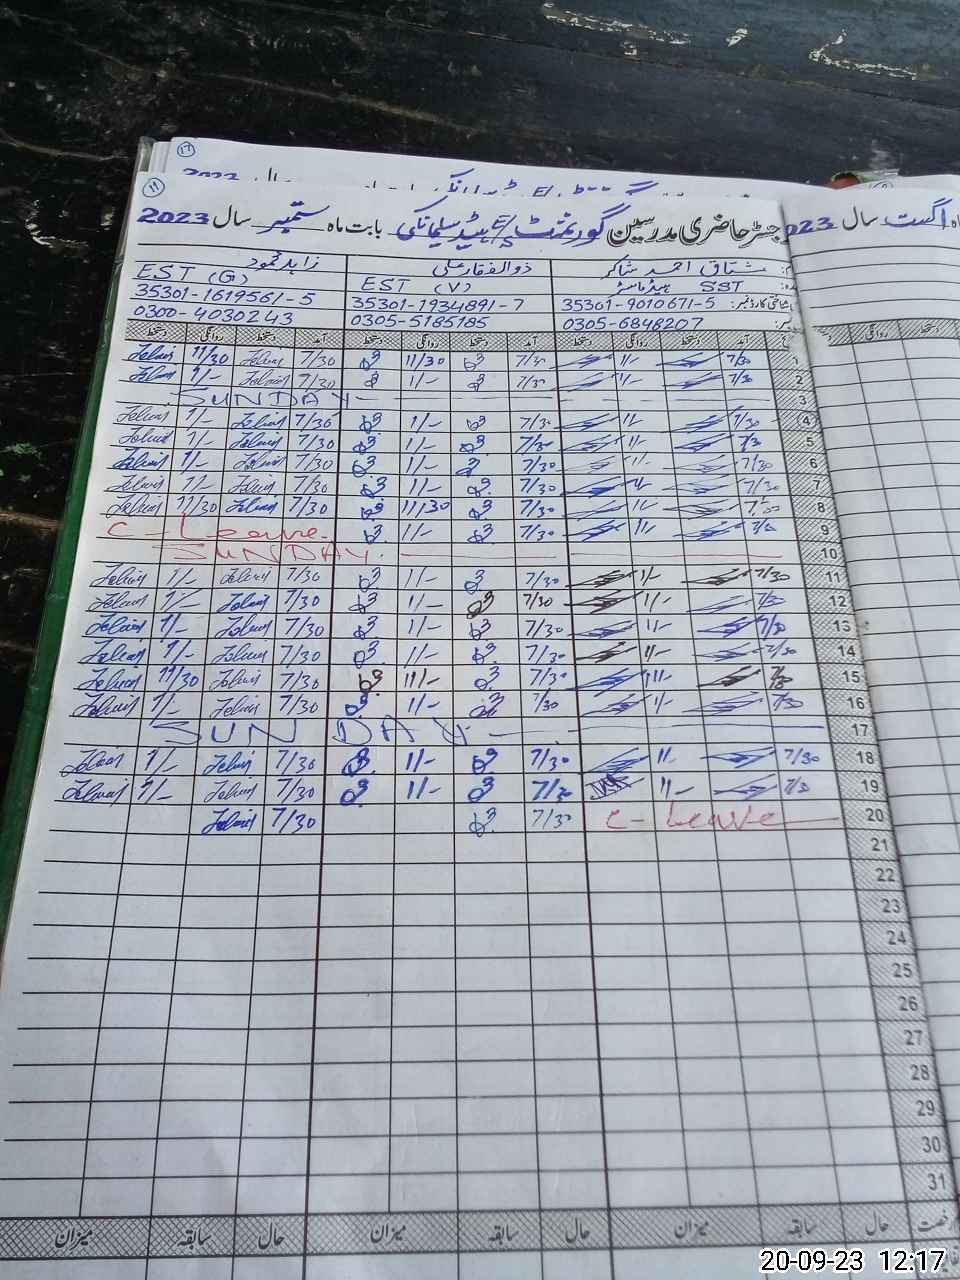 17
11
رجسٹر حاضری مدرسین گورنمنٹ E/S ہیڈ سلیمانکی بابت ماہ ستمبر سال 2023
ماہ اگست سال 2023
مشتاق احمد شاکر ذوالفقار علی زاہد محمود
SST ہیڈ ماسٹر EST (V) EST (G)
شناختی کارڈ نمبر: 35301-9010671-5 35301-1934891-7 35301-1619561-5
0305-6848207 0305-5185185 0300-4030243
آمد دستخط روانگی دستخط آمد دستخط روانگی دستخط آمد دستخط روانگی دستخط
1 7/30 1/- 7/30 11/30 7/30 11/30
2 7/30 1/- 7/30 1/- 7/30 1/-
3 SUNDAY
4 7/30 1/- 7/30 1/- 7/30 1/-
5 7/3 1/- 7/30 1/- 7/30 1/-
6 7/30 1/- 7/30 1/- 7/30 1/-
7 7/30 1/- 7/30 1/- 7/30 1/-
8 1/- 7/30 11/30 7/30 11/30
9 11/- 7/30 1/- C-Leave
10 SUNDAY
11 7/30 1/- 7/30 1/- 7/30 1/-
12 7/30 1/- 7/30 1/- 7/30 1/-
13 7/30 1/- 7/30 1/- 7/30 1/-
14 7/30 11/- 7/30 1/- 7/30 1/-
15 7/30 11/- 7/30 11/- 7/30 11/30
16 7/30 1/- 7/30 1/- 7/30 1/-
17 SUNDAY
18 7/30 11/- 7/30 1/- 7/30 1/-
19 7/3 11/- 7/30 1/- 7/30 1/-
20 C-Leave 7/30 7/30
21
22
23
24
25
26
27
28
29
30
31
رخصت حال سابقہ میزان حال سابقہ میزان حال سابقہ میزان
20-09-23 12:17